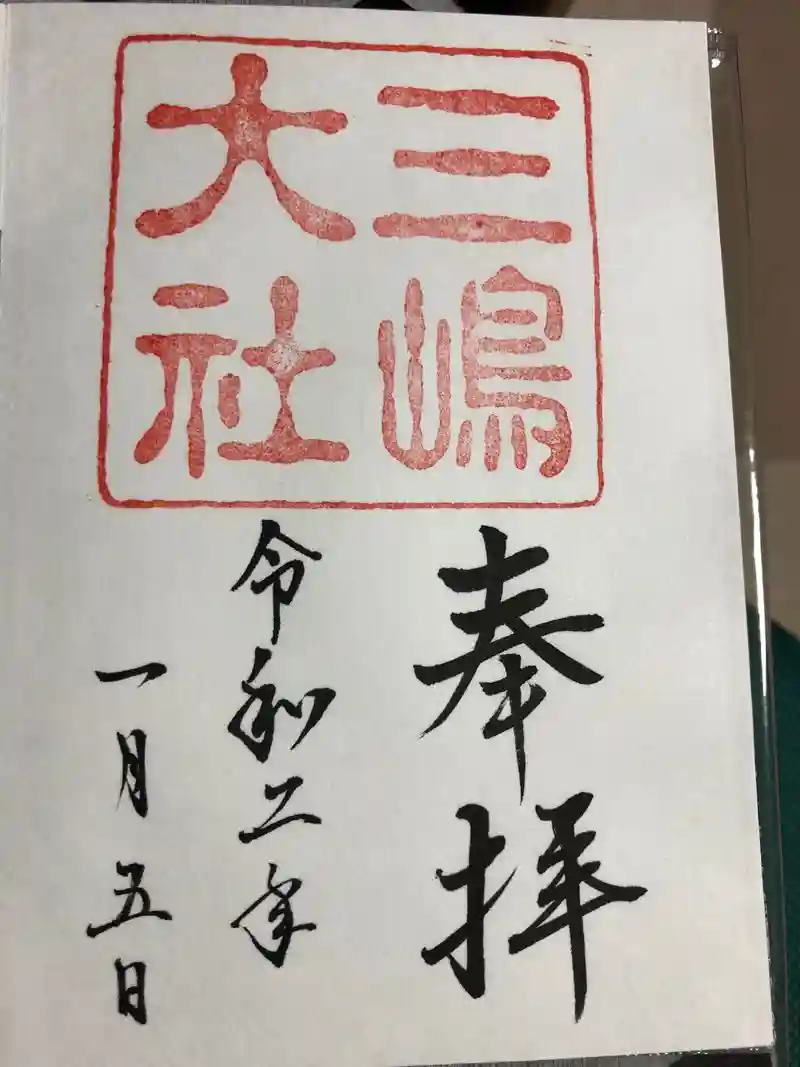 三嶋
大社
奉拝
令和二年
一月五日